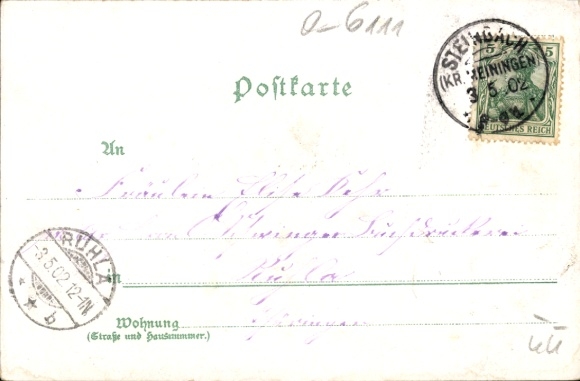 0-6111
STEINBACH
(KR. MEININGEN)
3 5. 02
8-9V.
5 5
DEUTSCHES REICH
Postkarte
An
Fräulein Elise
Buchdruckerei
in Ruhla
Thüringen
RUHLA
3.5.02.12-1N
* * b
Wohnung
(Straße und Hausnummer.)